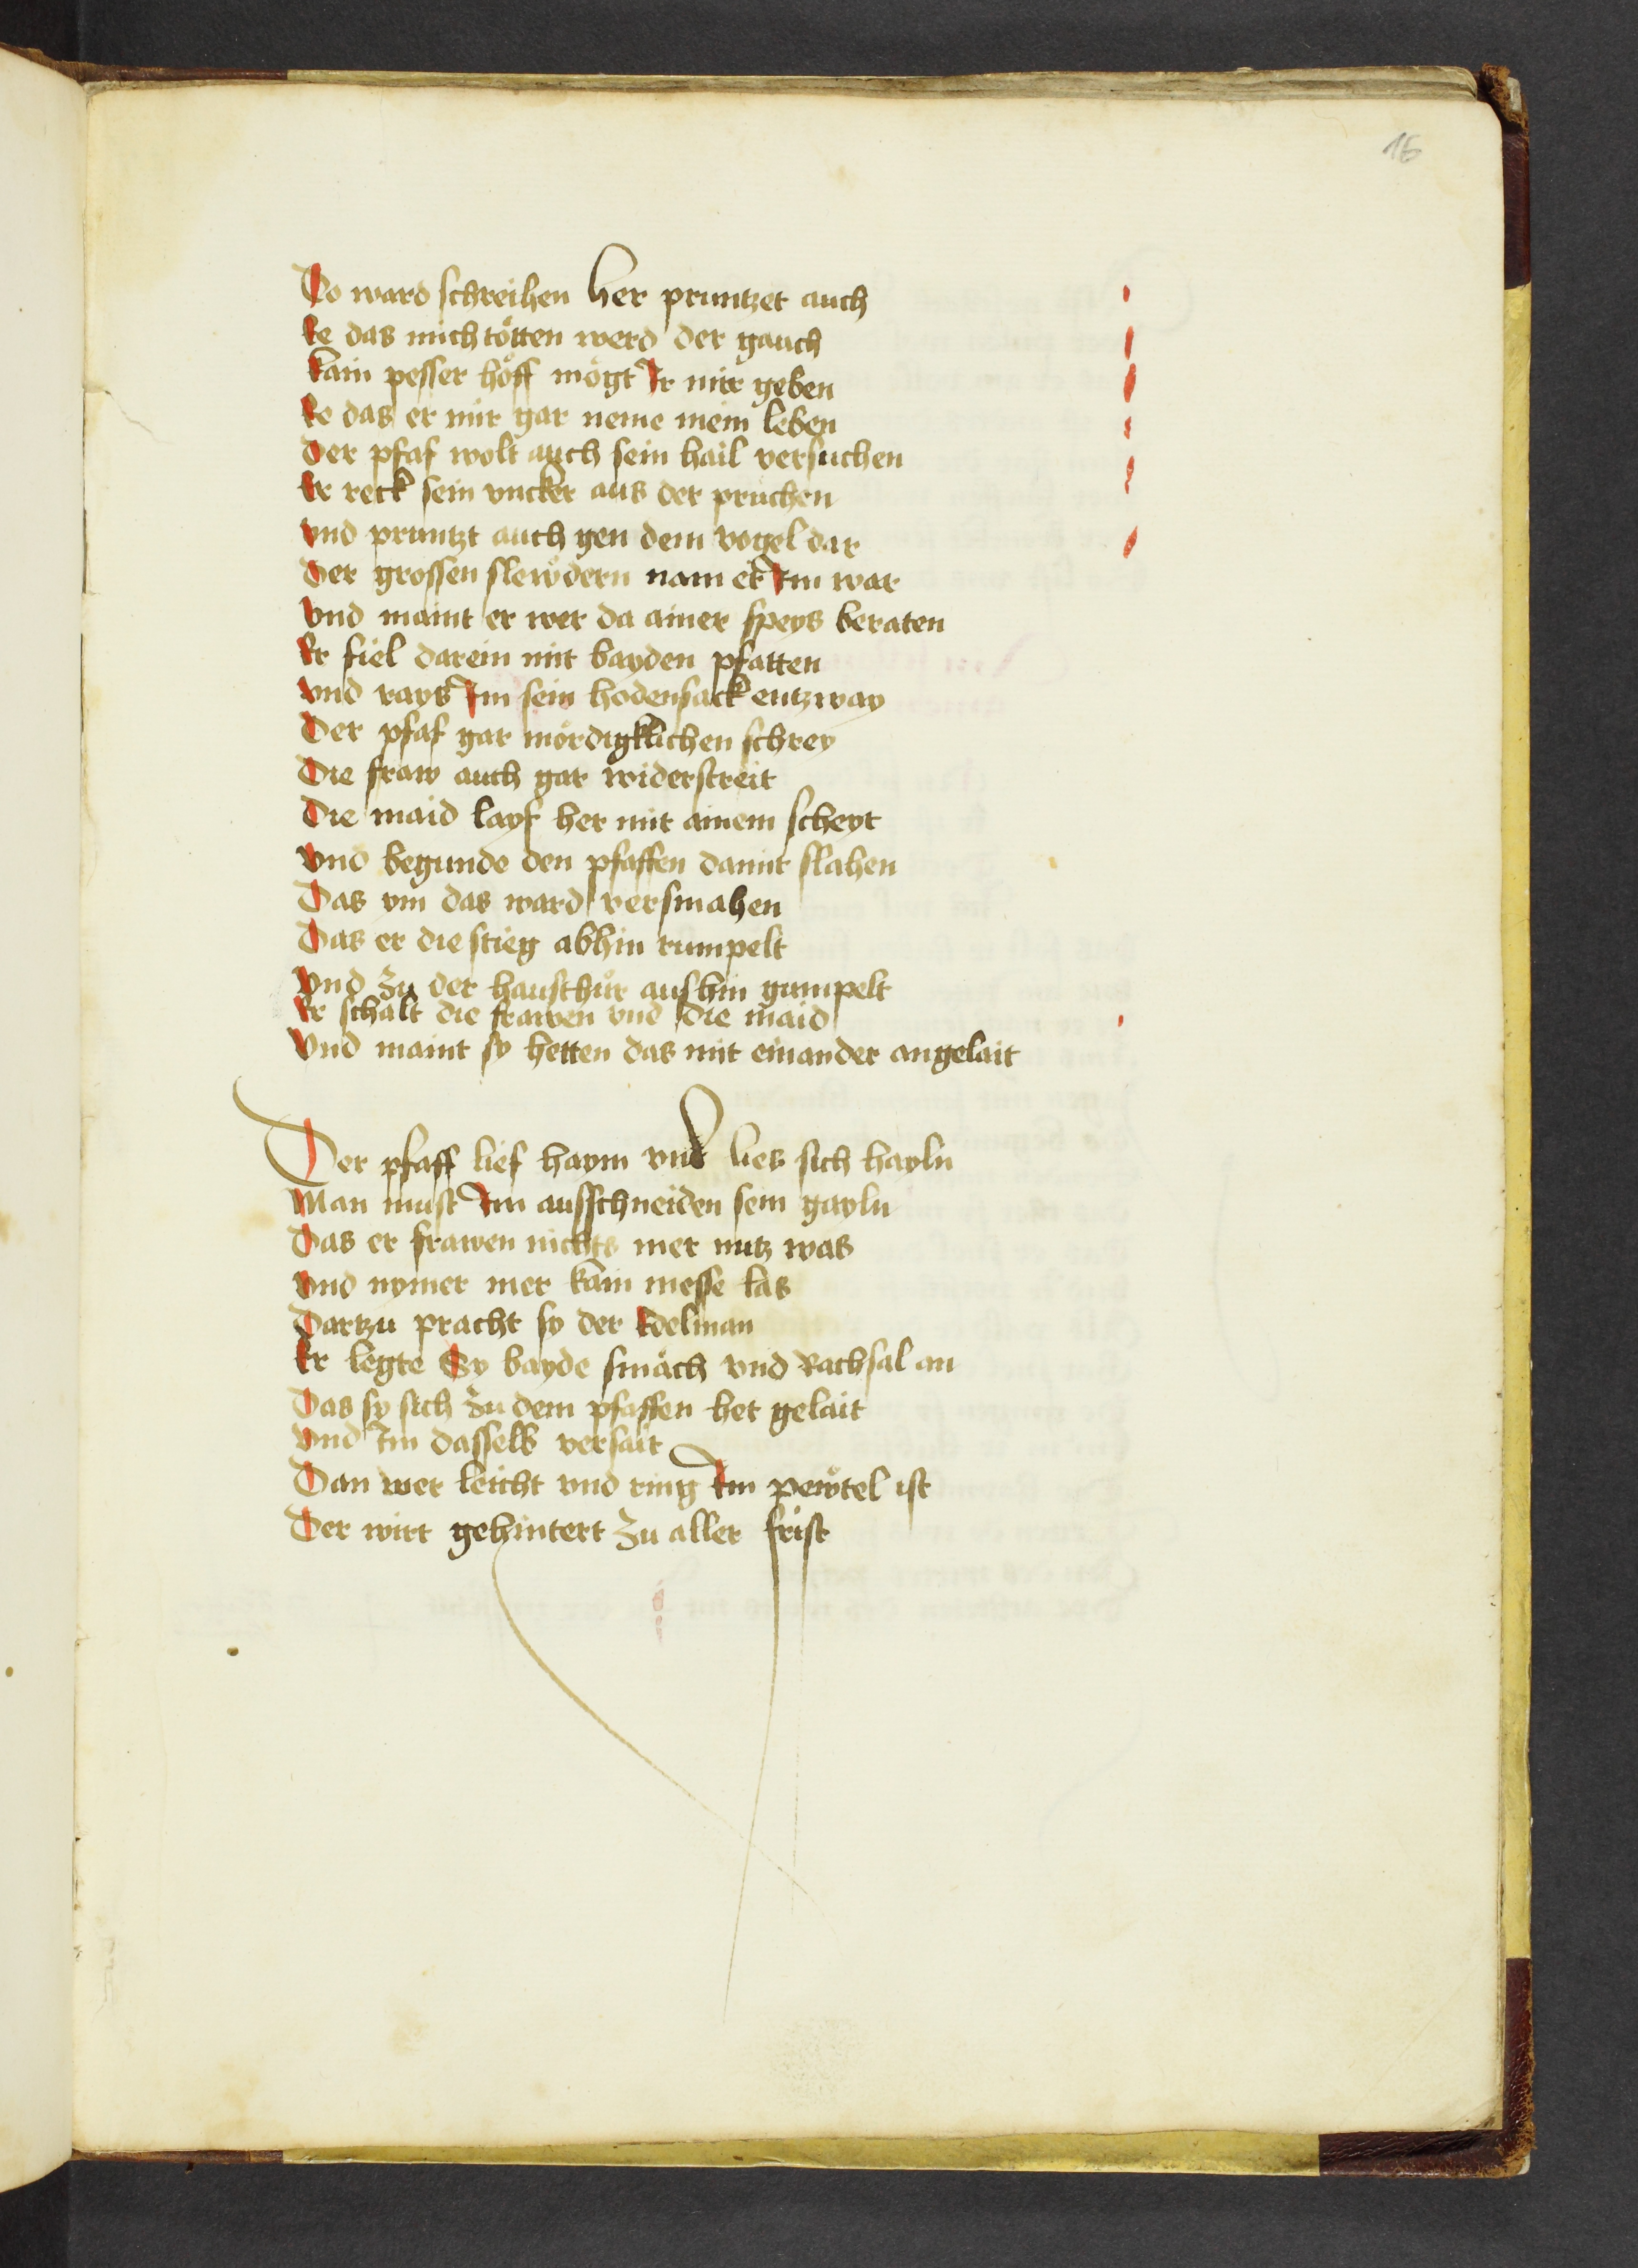 16
Do ward schreihen her pruntzet auch
Ee das mich tötten werd der gauch
kain pesser höff mögt Ir mir geben
Ee das er mir gar neme mein leben
Der pfaf wolt auch sein hail versuchen
Er reck sein vncker aus der pruchen
vnd pruntzt auch gen dem vogel dar
Der grossen slewdern nam er Im war
vnd maint er wer da ainer speys beraten
Er fiel darein mit bayden pfatten
vnd rays Im sein hodensack entzway
Der pfaf gar mördigklichen schrey
Die fraw auch gar widerstreit
Die maid layf her mit ainem scheyt
vnd begunde den pfaffen damit slahen
Das vm das ward versmahen
Das er die stieg abhin rumpelt
vnd zu der hausthür aushin gumpelt
Er schalt die frawen vnd die maid
Vnd maint sy hetten das mit einander angelait
Der pfaff lief haym vnd lies sich hayln
Man must Im ausschneiden sein gayln
Das er frawen nichts mer nutz was
vnd nymer mer kain messe las
Dartzu pracht sy der Edelman
Er legte Sy bayde smäch vnd Rachsal an
Das sy sich zu dem pfaffen het gelait
vnd Im dasselb versait
Dan wer leicht vnd ring Im pewtel ist
Der wirt gehintert zu aller frist